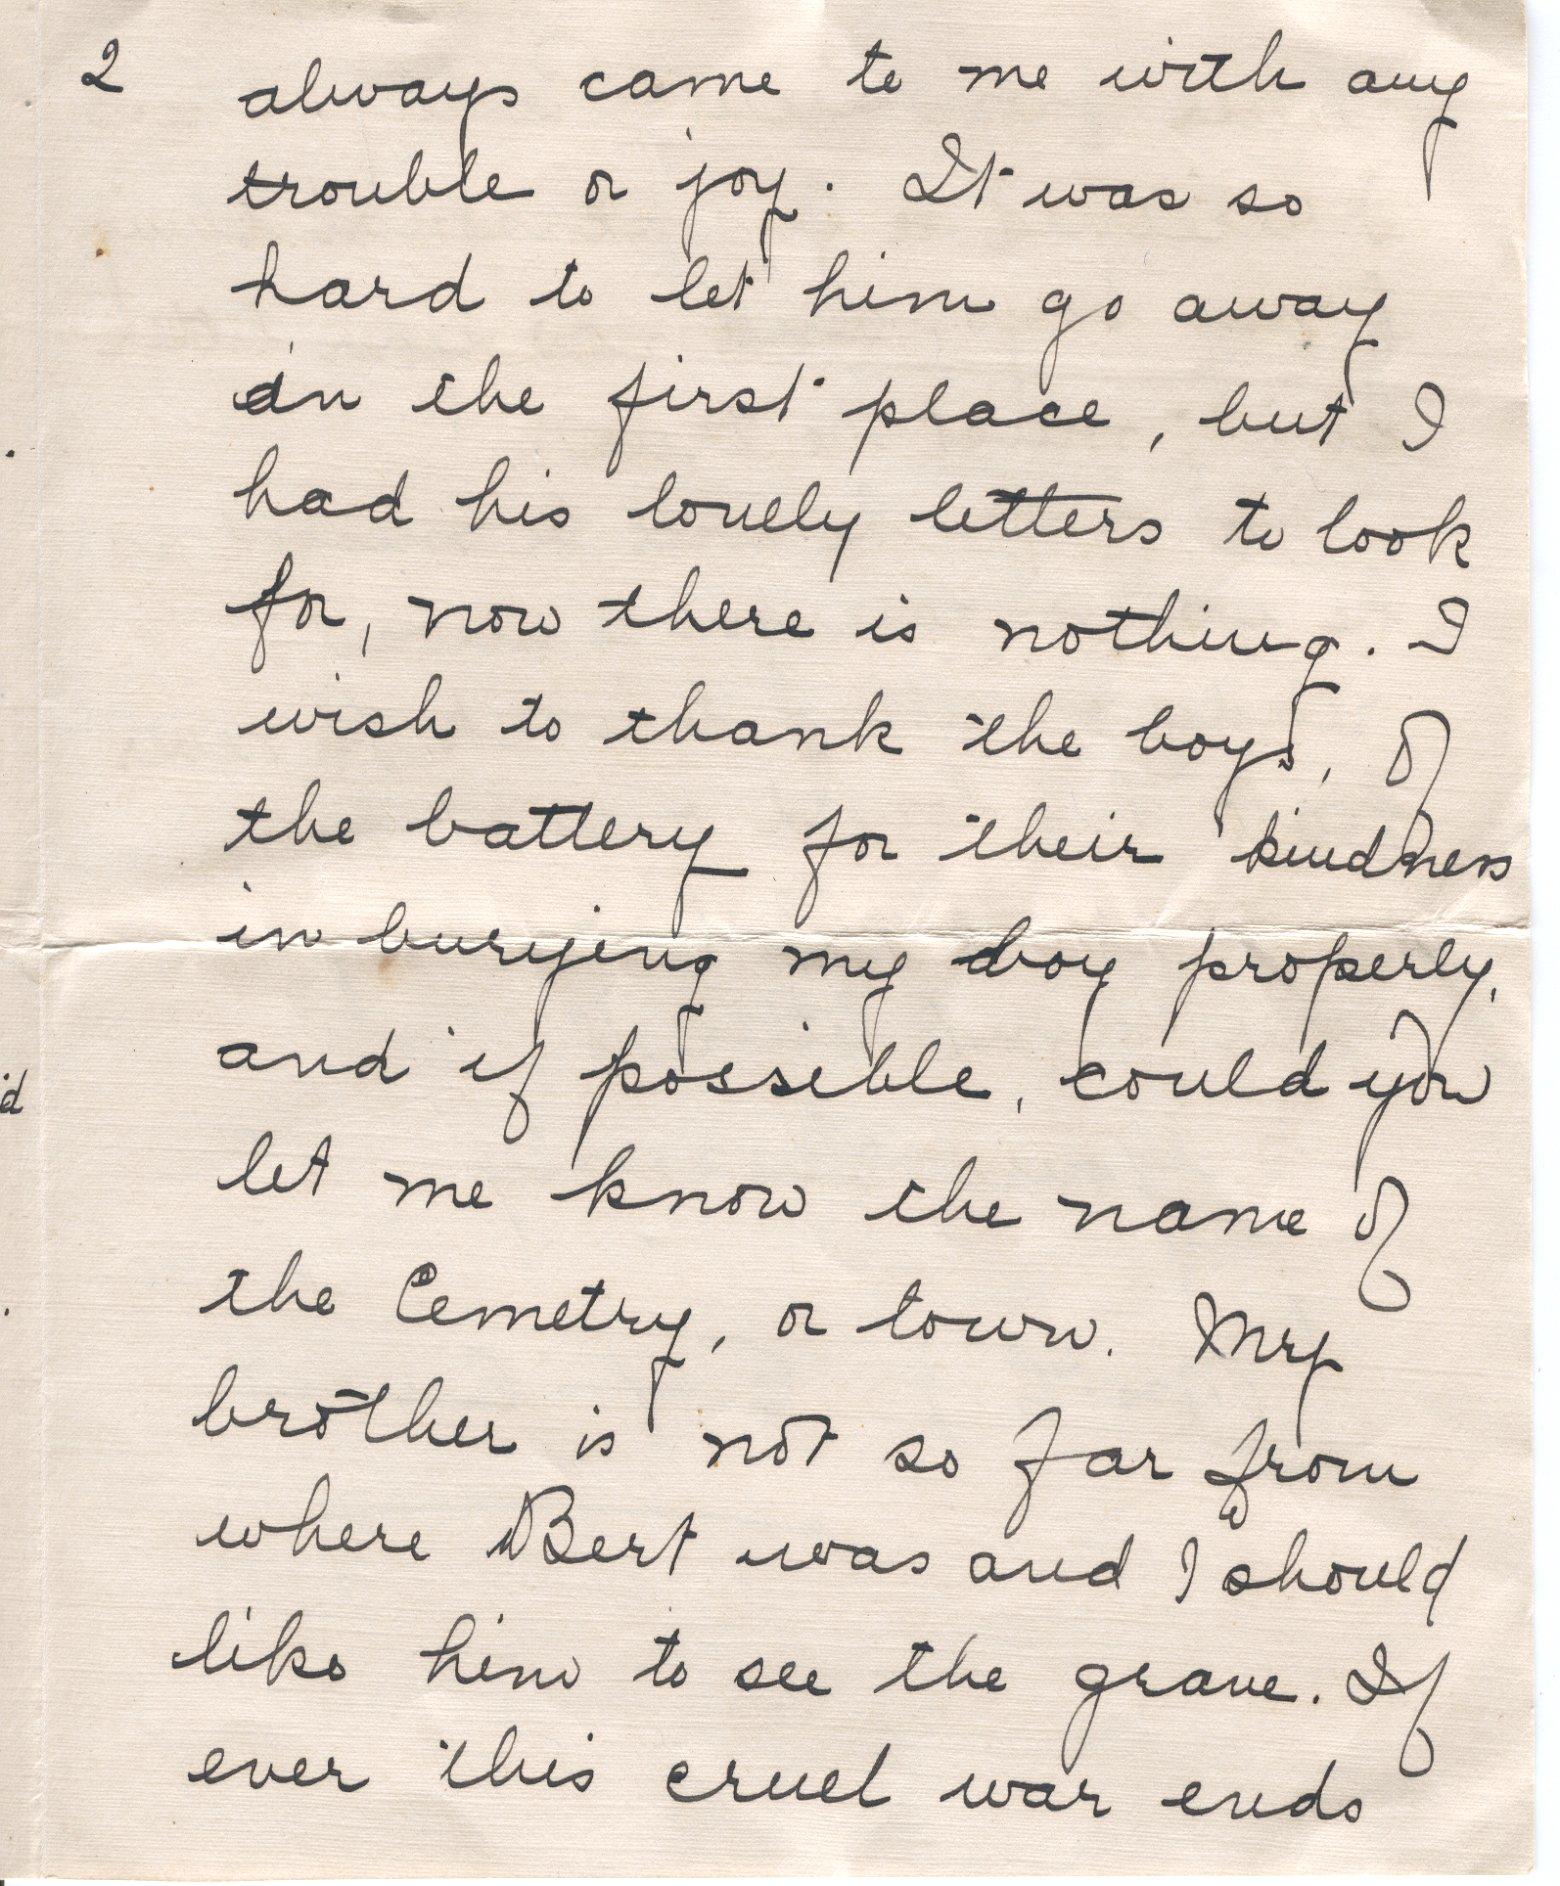 2
always came to me with any
trouble or joy. It was so
hard to let him go away
in the first place, but I
had his lovely letters to look
for, now there is nothing. I
wish to thank the boys, of
the battery for their kindness
in burying my boy properly,
and if possible, could you
let me know the name of
the Cemetry, or town. My
brother is not so far from
where Bert was and I should
like him to see the grave. If
ever this cruel war ends
d